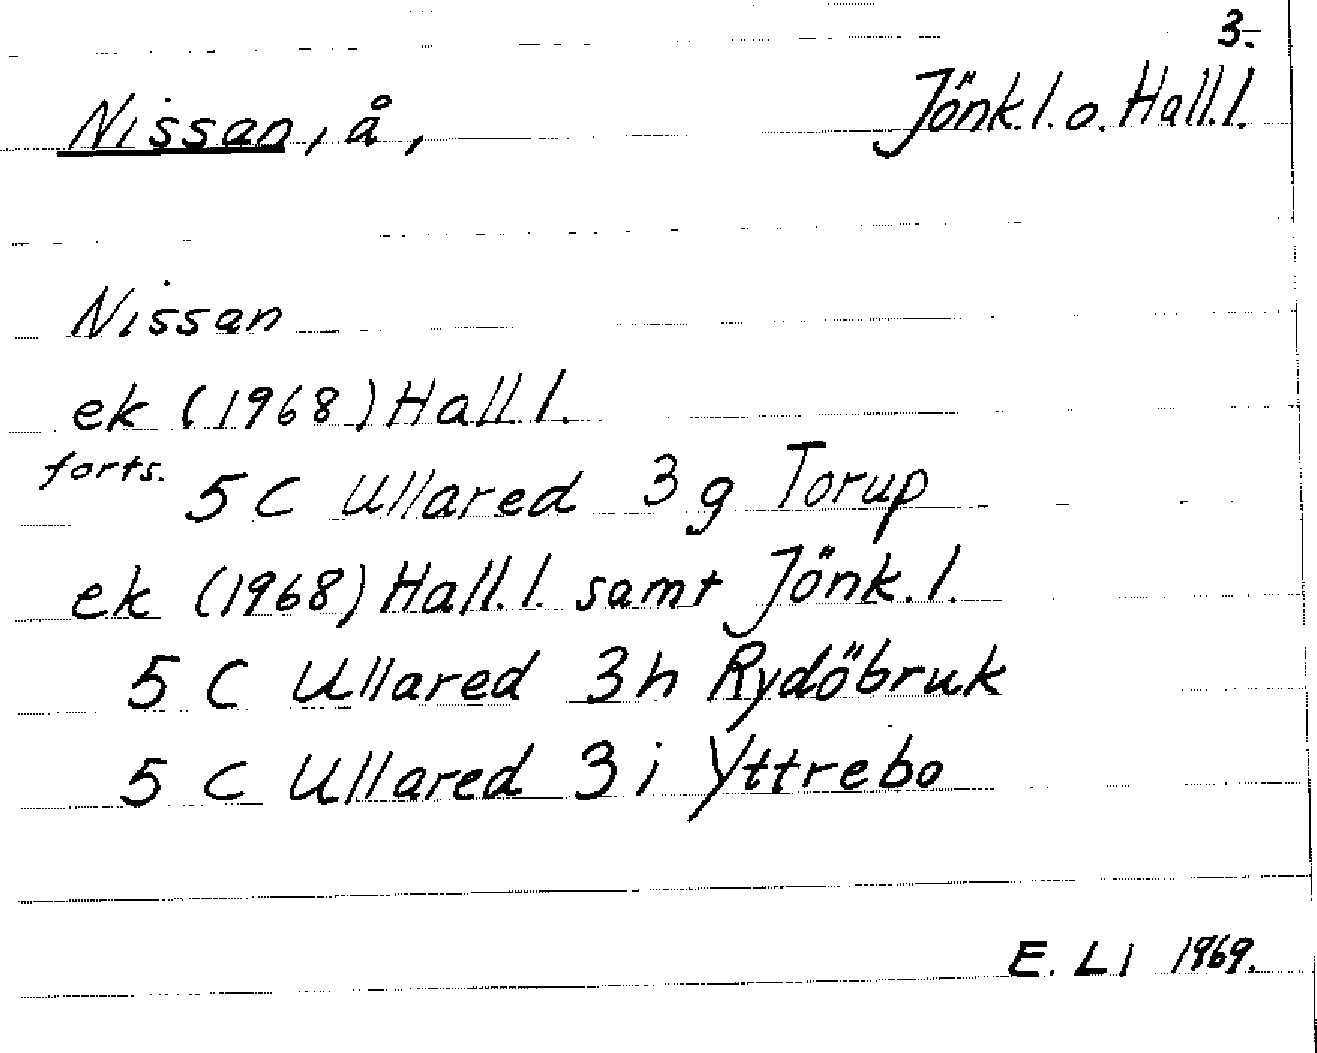 3.
Nissan, å, Jönk.l. o. Hall.l.
Nissan
ek (1968) Hall.l.
forts. 5 C Ullared 3 g Torup
ek (1968) Hall.l. samt Jönk.l.
5 C Ullared 3 h Rydöbruk
5 C Ullared 3 i Yttrebo
E. Li 1969.